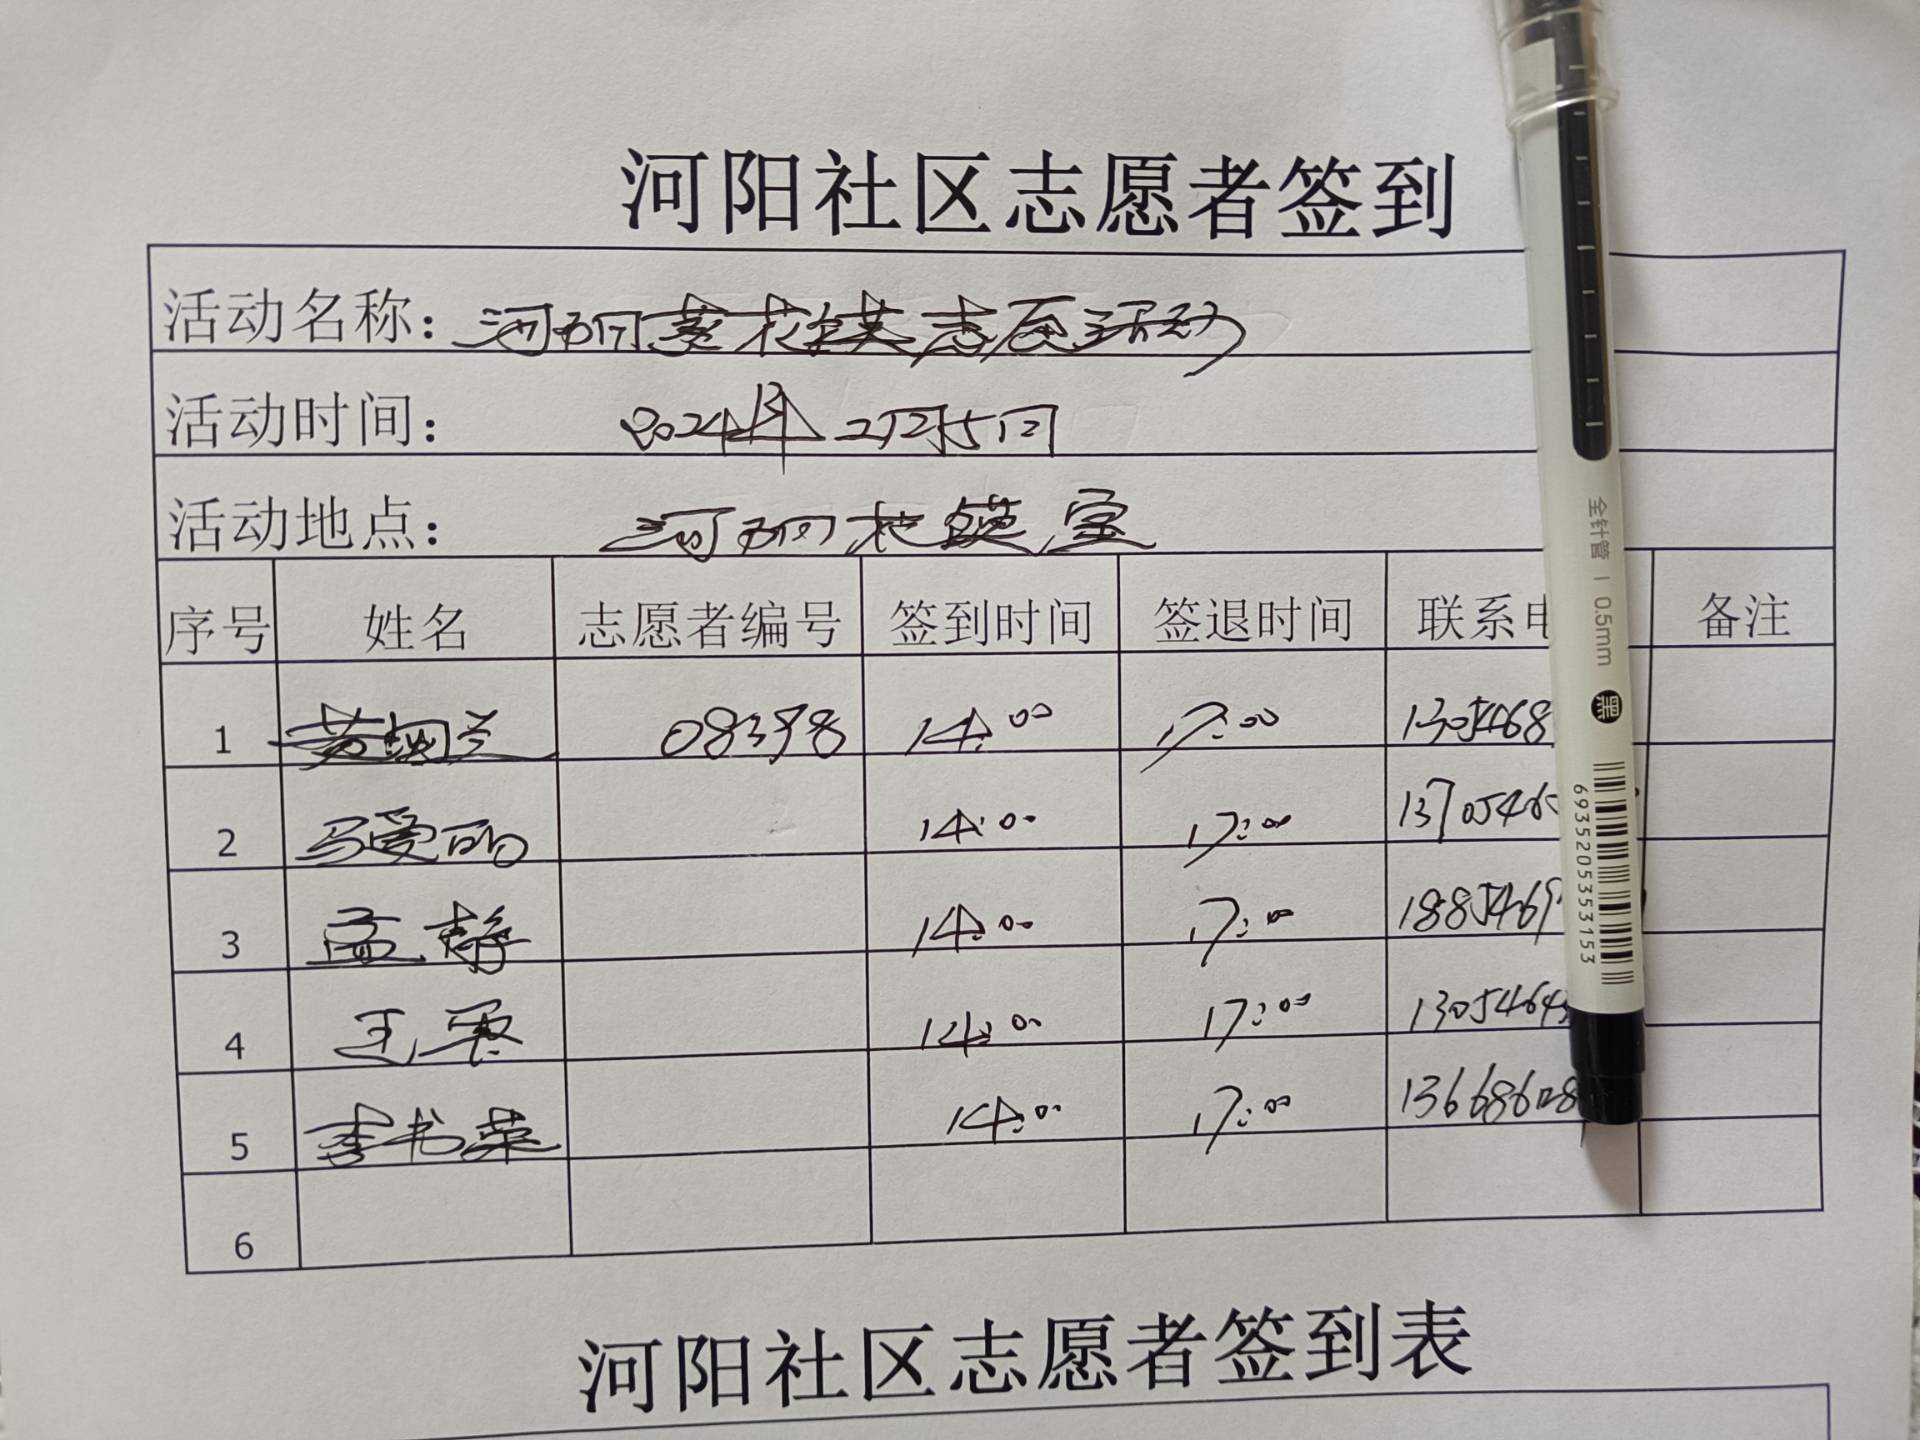 河阳社区志愿者签到
活动名称：河阳葵花镁志愿活动
活动时间：2024年2月25日
活动地点：河阳
序号 姓名 志愿者编号 签到时间 签退时间 联系电 备注
1 08398 14:00 17:00 1305468
2 马爱 14:00 17:00 13705465
3 孟静 14:00 17:00 1885469
4 王翠 14:00 17:00 1305464
5 李书荣 14:00 17:00 136686028
6
河阳社区志愿者签到表
全针管 | 0.5mm 黑
6935205353153